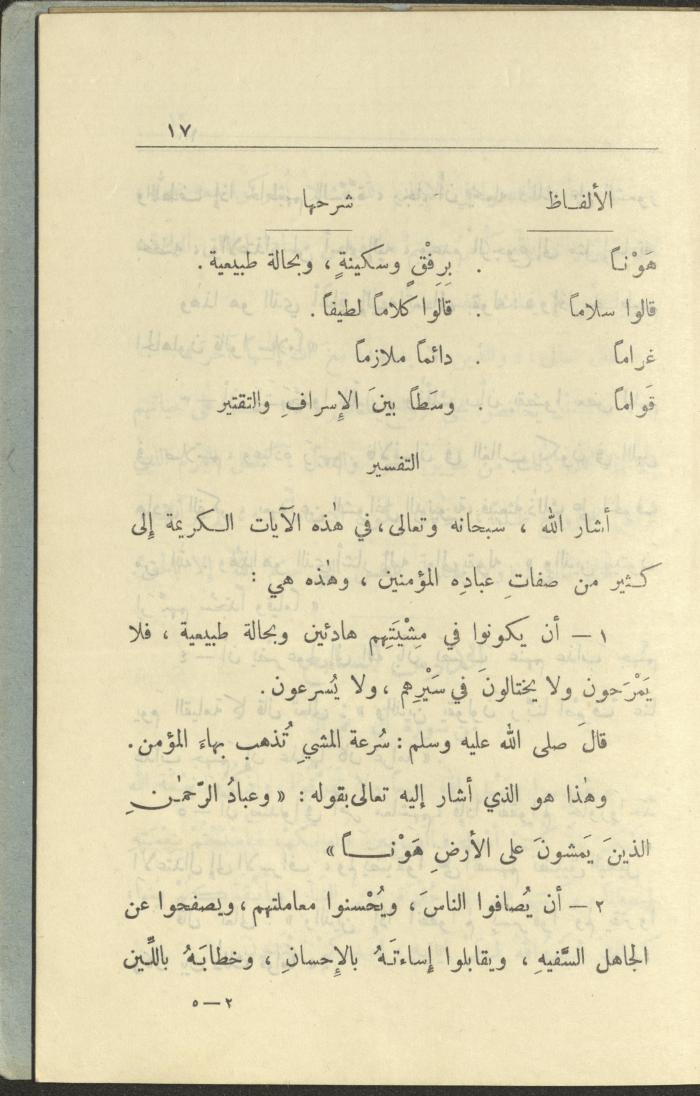 ١٧
الألفـاظ شرحها
هَوْنـاً . بِرِفْقٍ وسكينةٍ ، وبحالة طبيعية .
قالوا سلاماً . قالُوا كلاماً لطيفاً .
غراماً . دائماً ملازماً
قَواماً . وسَطاً بينَ الإِسرافِ والتقتير
التفسير
أشار الله ، سبحانه وتعالى ، في هٰذه الآيات الكريمة إلى
كثير من صفاتِ عبادِه المؤمنين ، وهٰذه هي :
١ – أن يكونوا في مِشْيَتِهم هادئين وبحالة طبيعية ، فلا
يَمْرَحون ولا يختالونَ في سَيْرِهم ، ولا يُسرعون .
قالَ صلى الله عليه وسلم : سُرعة المشيِ تُذهب بهاءَ المؤمن .
وهٰذا هو الذي أشار إليه تعالى بقوله : « وعبادُ الرّحمٰـنِ
الذينَ يَمشونَ على الأرضِ هَوْنـــاً »
٢ – أن يُصافوا الناسَ ، ويُحْسنوا معاملتهم ، ويصفحوا عن
الجاهل السَّفيهِ ، ويقابلوا إساءتَـهُ بالإِحسانِ ، وخطابَـهُ باللِّـين
٢ — ٥